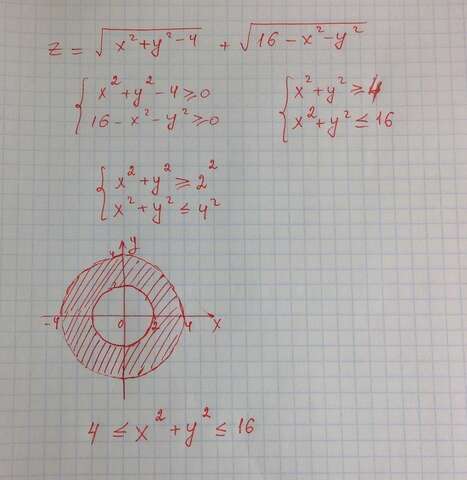 z = √(x² + y² - 4) + √(16 - x² - y²)
{ x² + y² - 4 ≥ 0
16 - x² - y² ≥ 0
{ x² + y² ≥ 4
x² + y² ≤ 16
{ x² + y² ≥ 2²
x² + y² ≤ 4²
y
4
2
-4 0 2 4 x
4 ≤ x² + y² ≤ 16